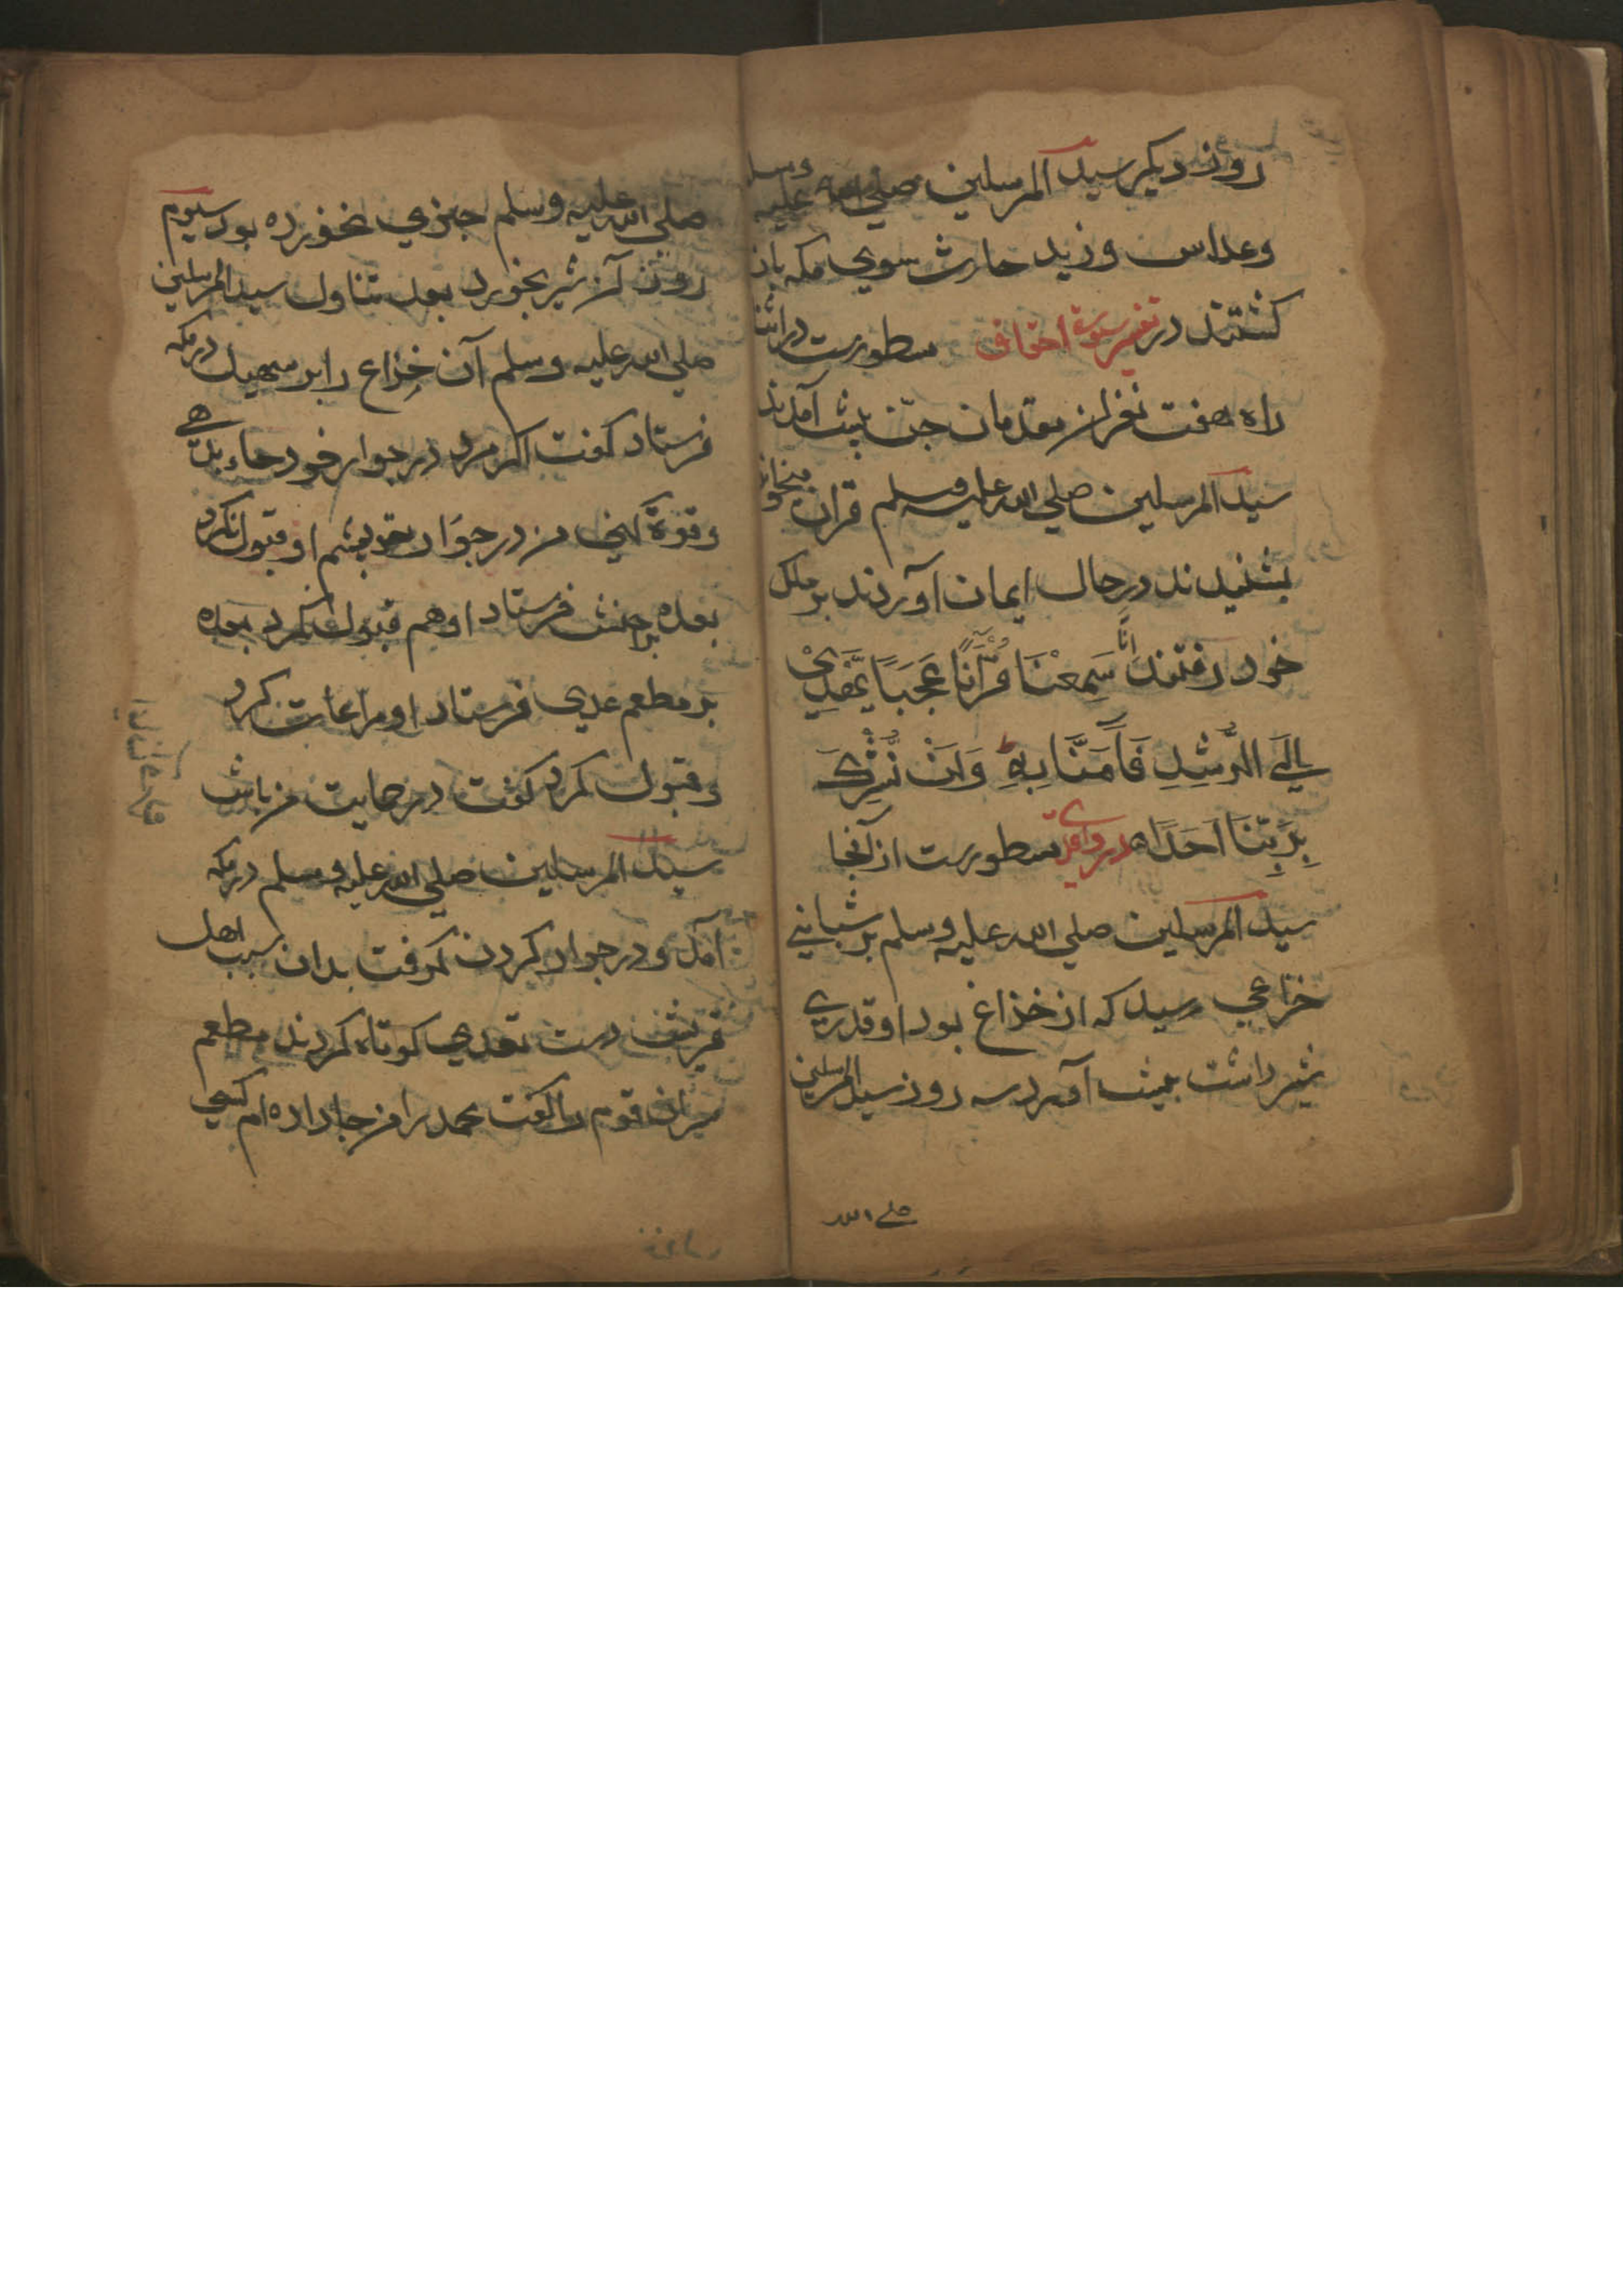 روز دیکر سید المرسلین صلي الله علیه وسلم
وعداس و زید حارث سوي مکه باز
کشتند در تفسیر سورة احقاف سطورست در اثناء
راه هفت نفر از مقدمان جنّ پیش آمدند
سید المرسلین صلي الله علیه وسلم قران میخواند
بشنیدند در حال ایمان آوردند بر ملک
خود رفتند اِنَّا سَمِعْنَا قُرْآنًا عَجَبًا یَّهْدِيْ
اِلَي الرُّشْدِ فَاٰمَنَّا بِهٖ وَلَنْ نُّشْرِكَ
بِرَبِّنَا اَحَدًا در واقدي سطورست از آنجا
سید المرسلین صلي الله علیه وسلم بر شباني
خزاعي رسید که از خذاع بود او قدري
شیر داشت پیش آورد سه روز سید المرسلین
صلے الله
صلي الله علیه وسلم چیزي نخورده بود سیوم
روز آن شیر بخورد بعد تناول سید المرسلین
صلي الله علیه وسلم آن خذاع را بر سهیل در مکه
فرستاد کفت اکر مرد در جوار خود جاء بدهي
وقوة کني من در جوار تو بیایم او قبول نکرد
بعده بر خنس فرستاد او هم قبول نکرد بعده
بر مطعم عدي فرستاد او مراعات کرد
و قبول کرد کفت در حمایت من باش
سید المرسلین صلي الله علیه وسلم در مکه
آمد و در جوار کردن کرفت بدان سبب اهل
قریش دست تعدي کوتاه کردند مطعم
سران قوم را کفت محمد را من جا داده ام کسي